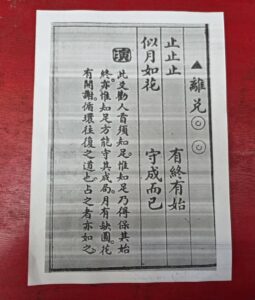 ▲離兌◎◎
止止止 有終有始
似月如花 守成而已
此爻勸人首須知足。惟知足乃得保其始
終。亦惟知足方能守其成局。月有缺圓。花
有開謝。循環往復之道也。占之者亦如之。